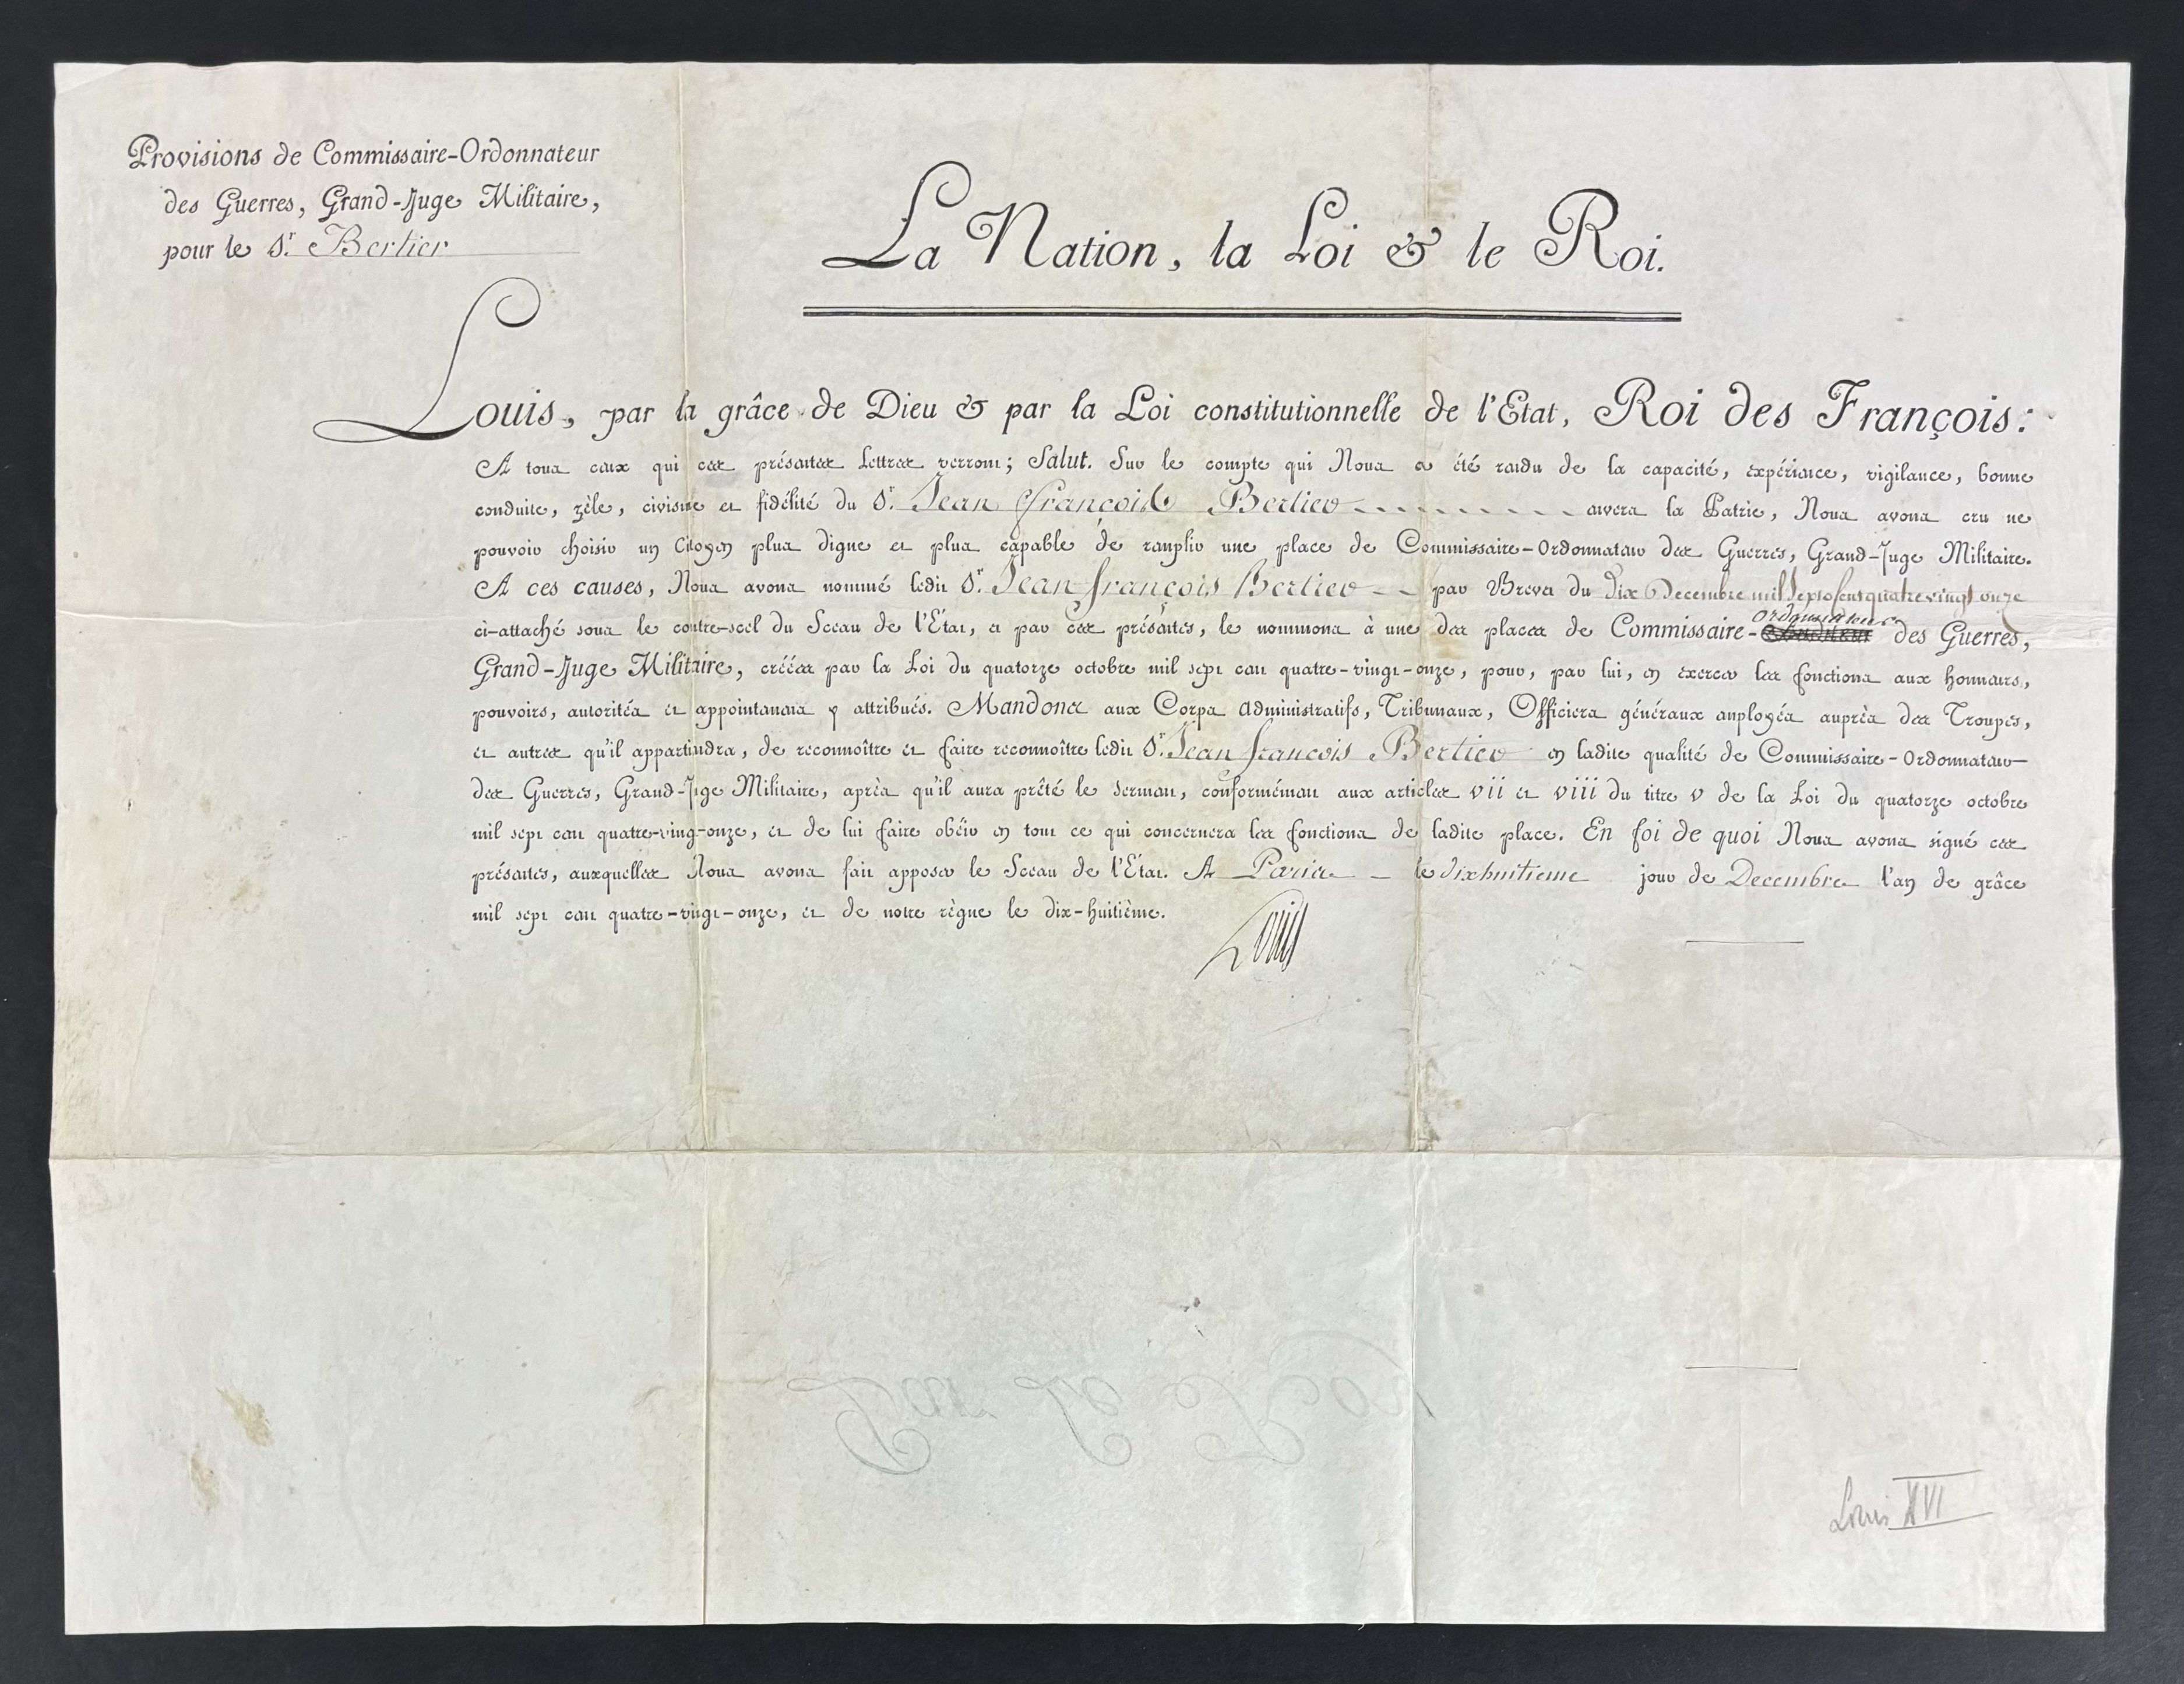 Provisions de Commissaire-Ordonnateur
des Guerres, Grand-Juge Militaire,
pour le S.r Bertier
La Nation, la Loi & le Roi.
Louis, par la grâce de Dieu & par la Loi constitutionnelle de l'Etat, Roi des François:
A tous ceux qui ces présentes Lettres verront; Salut. Sur le compte qui Nous a été rendu de la capacité, expérience, vigilance, bonne
conduite, zèle, civisme et fidélité du S.r Jean françois Bertier envers la Patrie, Nous avons cru ne
pouvoir choisir un Citoyen plus digne et plus capable de remplir une place de Commissaire-Ordonnateur des Guerres, Grand-Juge Militaire.
A ces causes, Nous avons nommé ledit S.r Jean françois Bertier par Brevet du dix Decembre mil sept cent quatre vingt onze
ci-attaché sous le contre-scel du Sceau de l'État, et par ces présentes, le nommons à une des places de Commissaire-Ordonnateur des Guerres,
Grand-Juge Militaire, créées par la Loi du quatorze octobre mil sept cent quatre-vingt-onze, pour, par lui, en exercer les fonctions aux honneurs,
pouvoirs, autorités et appointemens y attribués. Mandons aux Corps administratifs, Tribunaux, Officiers généraux employés auprès des Troupes,
et autres qu'il appartiendra, de reconnoître et faire reconnoître ledit S.r Jean francois Bertier en ladite qualité de Commissaire-Ordonnateur
des Guerres, Grand-Juge Militaire, après qu'il aura prêté le serment, conformément aux articles vii et viii du titre v de la Loi du quatorze octobre
mil sept cent quatre-vingt-onze, et de lui faire obéir en tout ce qui concernera les fonctions de ladite place. En foi de quoi Nous avons signé ces
présentes, auxquelles Nous avons fait apposer le Sceau de l'État. A Paris le dixhuitieme jour de Decembre l'an de grâce
mil sept cent quatre-vingt-onze, et de notre règne le dix-huitième.
Louis
Par Le Roi
Louis XVI